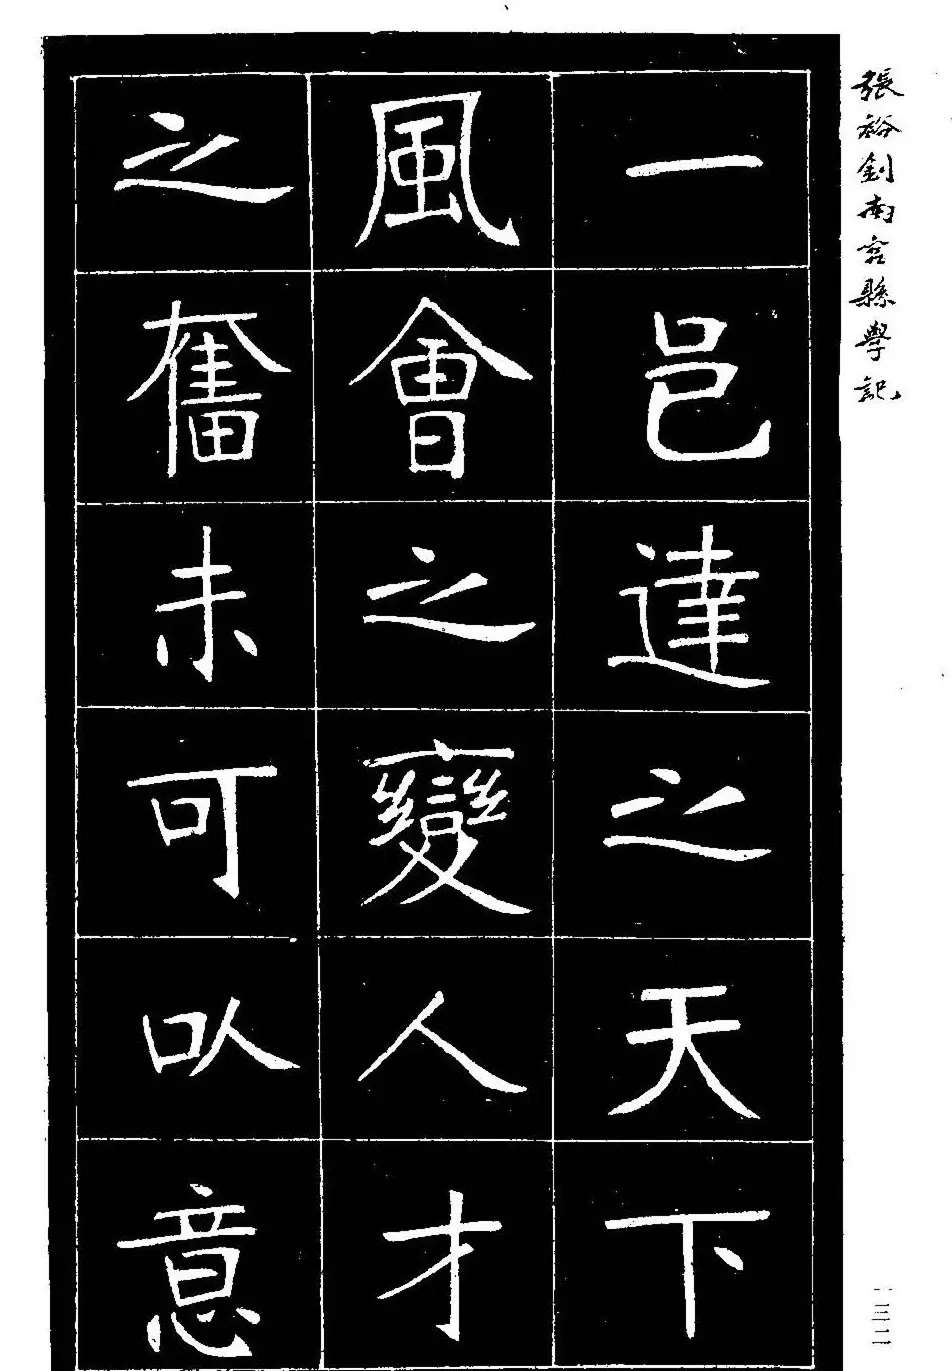 張裕釗南宮縣學記
一邑達之天下
風會之變人才
之奮未可以意
一三二